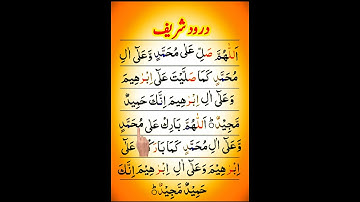 درود شریف
اَللّٰهُمَّ صَلِّ عَلٰى مُحَمَّدٍ وَّعَلٰٓى اٰلِ
مُحَمَّدٍ كَمَا صَلَّيْتَ عَلٰٓى اِبْرٰهِيْمَ
وَعَلٰٓى اٰلِ اِبْرٰهِيْمَ اِنَّكَ حَمِيْدٌ
مَّجِيْدٌؕ اَللّٰهُمَّ بَارِكْ عَلٰى مُحَمَّدٍ
وَّعَلٰٓى اٰلِ مُحَمَّدٍ كَمَا بَارَكْتَ عَلٰٓى
اِبْرٰهِيْمَ وَعَلٰٓى اٰلِ اِبْرٰهِيْمَ اِنَّكَ
حَمِيْدٌ مَّجِيْدٌؕ